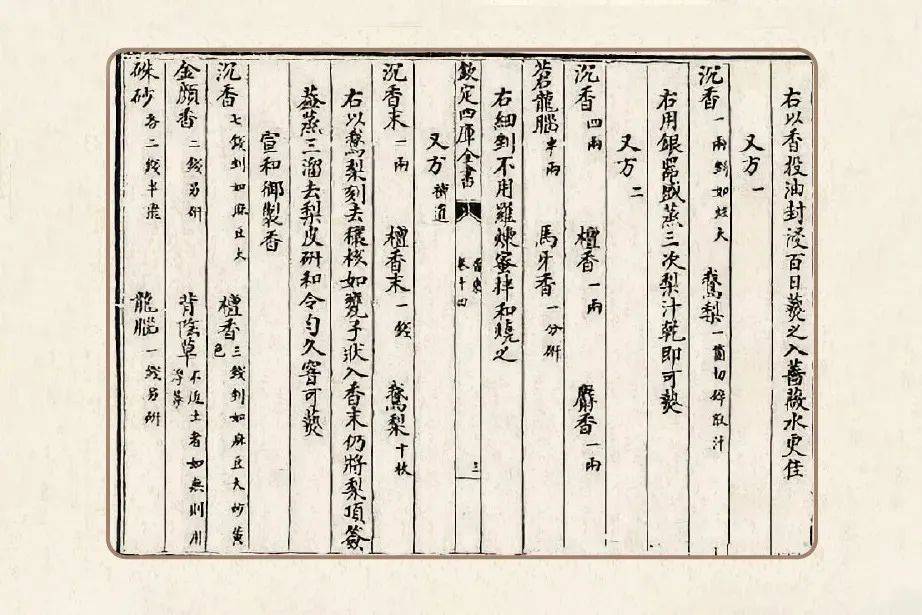 右以香投油封浸百日爇之入薔薇水更佳
又方一
沉香一兩剉如炷大 鵞梨一箇切碎取汁
右用銀器盛蒸三次梨汁乾即可爇
又方二
沉香四兩 檀香一兩 麝香一兩
蒼龍腦半兩 馬牙香一分研
右細剉不用羅煉蜜拌和燒之
欽定四庫全書 香乘 卷十四 三
又方補遺
沉香末一兩 檀香末一錢 鵞梨十枚
右以鵞梨刻去穰核如甕子狀入香末仍將梨頂簽
蓋蒸三溜去梨皮研和令勻久窨可爇
宣和御製香
沉香七錢剉如麻豆大 檀香三錢剉如麻豆大炒黃色
金顏香二錢另研 背陰草不近土者如無則用浮萍
硃砂各二錢半飛 龍腦一錢另研